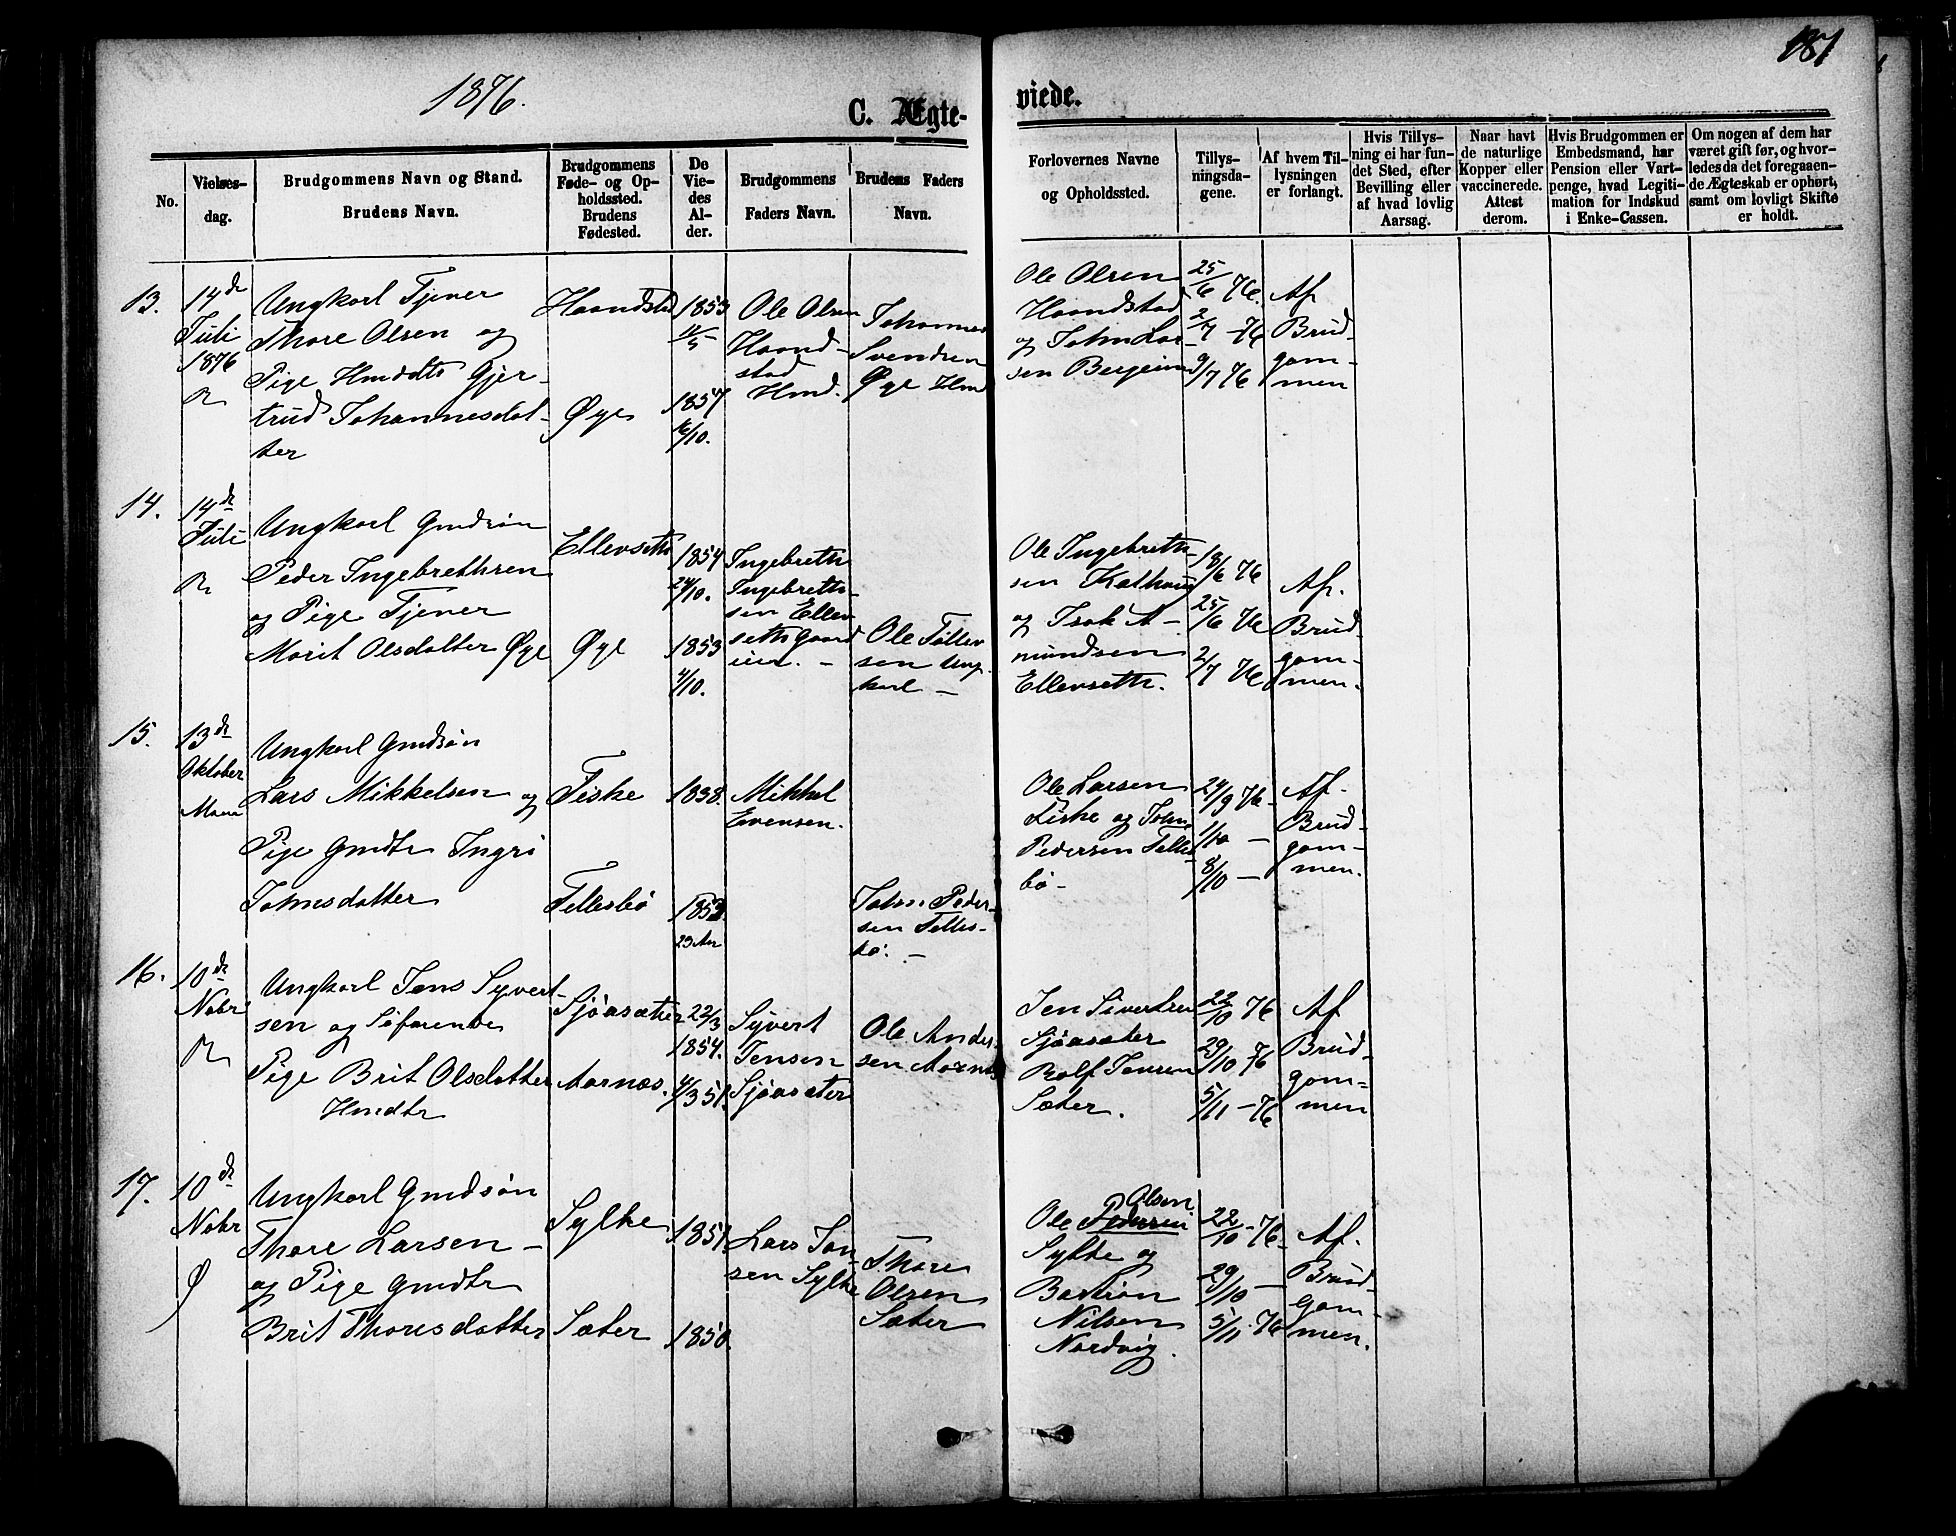 1876.
181
C. Ægte-
viede.
No.
Vielses-
dag.
Brudgommens Navn og Stand.
Brudens Navn.
Brudgommens
Føde- og Op-
holdssted.
Brudens
Fødested.
De
Vie-
des
Al-
der.
Brudgommens
Faders Navn.
Brudens Faders
Navn.
Forlovernes Navne
og Opholdssted.
Tillys-
ningsda-
gene.
Af hvem Til-
lysningen
er forlangt.
Hvis Tillys-
ning ei har fun-
det Sted, efter
Bevilling eller
af hvad lovlig
Aarsag.
Naar havt
de naturlige
Kopper eller
vaccinerede.
Attest
derom.
Hvis Brudgommen er
Embedsmand, har
Pension eller Vart-
penge, hvad Legiti-
mation for Indskud
i Enke-Cassen.
Om nogen af dem har
været gift før, og hvor-
ledes da det foregaaen-
de Ægteskab er ophørt,
samt om lovligt Skifte
er holdt.
13.
14de
Juli
1876
Ungkarl Tjener
Thore Olsen og
Pige Hmddtr Gjer-
trud Johannesdat-
ter
Haandstad
Øye
1853
11/5
1857
16/10.
Ole Olsen
Haand-
stad
Hmd.
Johannes
Svendsen
Øye Hmd
Ole Olsen
Haandstad
og John Lar-
sen Bergeim
25/6 76.
2/7 - 76
9/7 76
Af
Brud-
gom-
men
14.
14de
Juli
Ungkarl Gmdsøn
Peder Ingebrethsen
og Pige Tjener
Marit Olsdatter Øye
Ellevseth
Øye
1854
24/10.
1853
4/10.
Ingebreth
Ingebreth-
sen Ellev
seth Gaard
eier. -
Ole Tollev
sen Ung-
karl -
Ole Ingebreth-
sen Kalhaug
og Isak A-
mundsen
Ellevseth.
18/6 76
25/6 76
2/7 76
Af.
Brud-
gom-
men.
15.
13de
Oktober
Ungkarl Gmdsøn
Lars Mikkelsen og
Pige Gmdtr Ingri
Johnsdatter
Fiske
Tellesbø
1838.
1853
23 Aar
Mikkel
Evensen.
John Peder-
sen Telles-
bø. -
Ole Larsen
Fiske og John
Pedersen Telles-
bø-
24/9 76-
1/10 -
8/10 -
Af-
Brud-
gom-
men.
16.
10de
Nobr
Ungkarl Jens Syvert-
sen og Søfarende
Pige Brit Olsdatter
Hmdtr
Sjøasæter
Aarnæs.
22/3
1854.
4/3 51.
Syvert
Jensen
Sjøasæter
Ole Ander-
sen Aarnæs
Jen Sivertsen
Sjøasæter
Rolf Jonsen
Sæter.
22/10 76
29/10 76
5/11 - 76
Af
Brud-
gom-
men
17.
10de
Nobr
Ø
Ungkarl Gmdsøn
Thore Larsen -
og Pige Gmdtr
Brit Thoresdatter
Sylte
Sæter
1851.
1850.
Lars Jon-
sen Sylte
Thore
Olsen
Sæter
Olsen
Ole Pedersen
Sylte og
Bastian
Nilsen
Nordvig.
22/10 - 76-
29/10 -
5/11 - 76
Af.
Brud-
gom-
men.